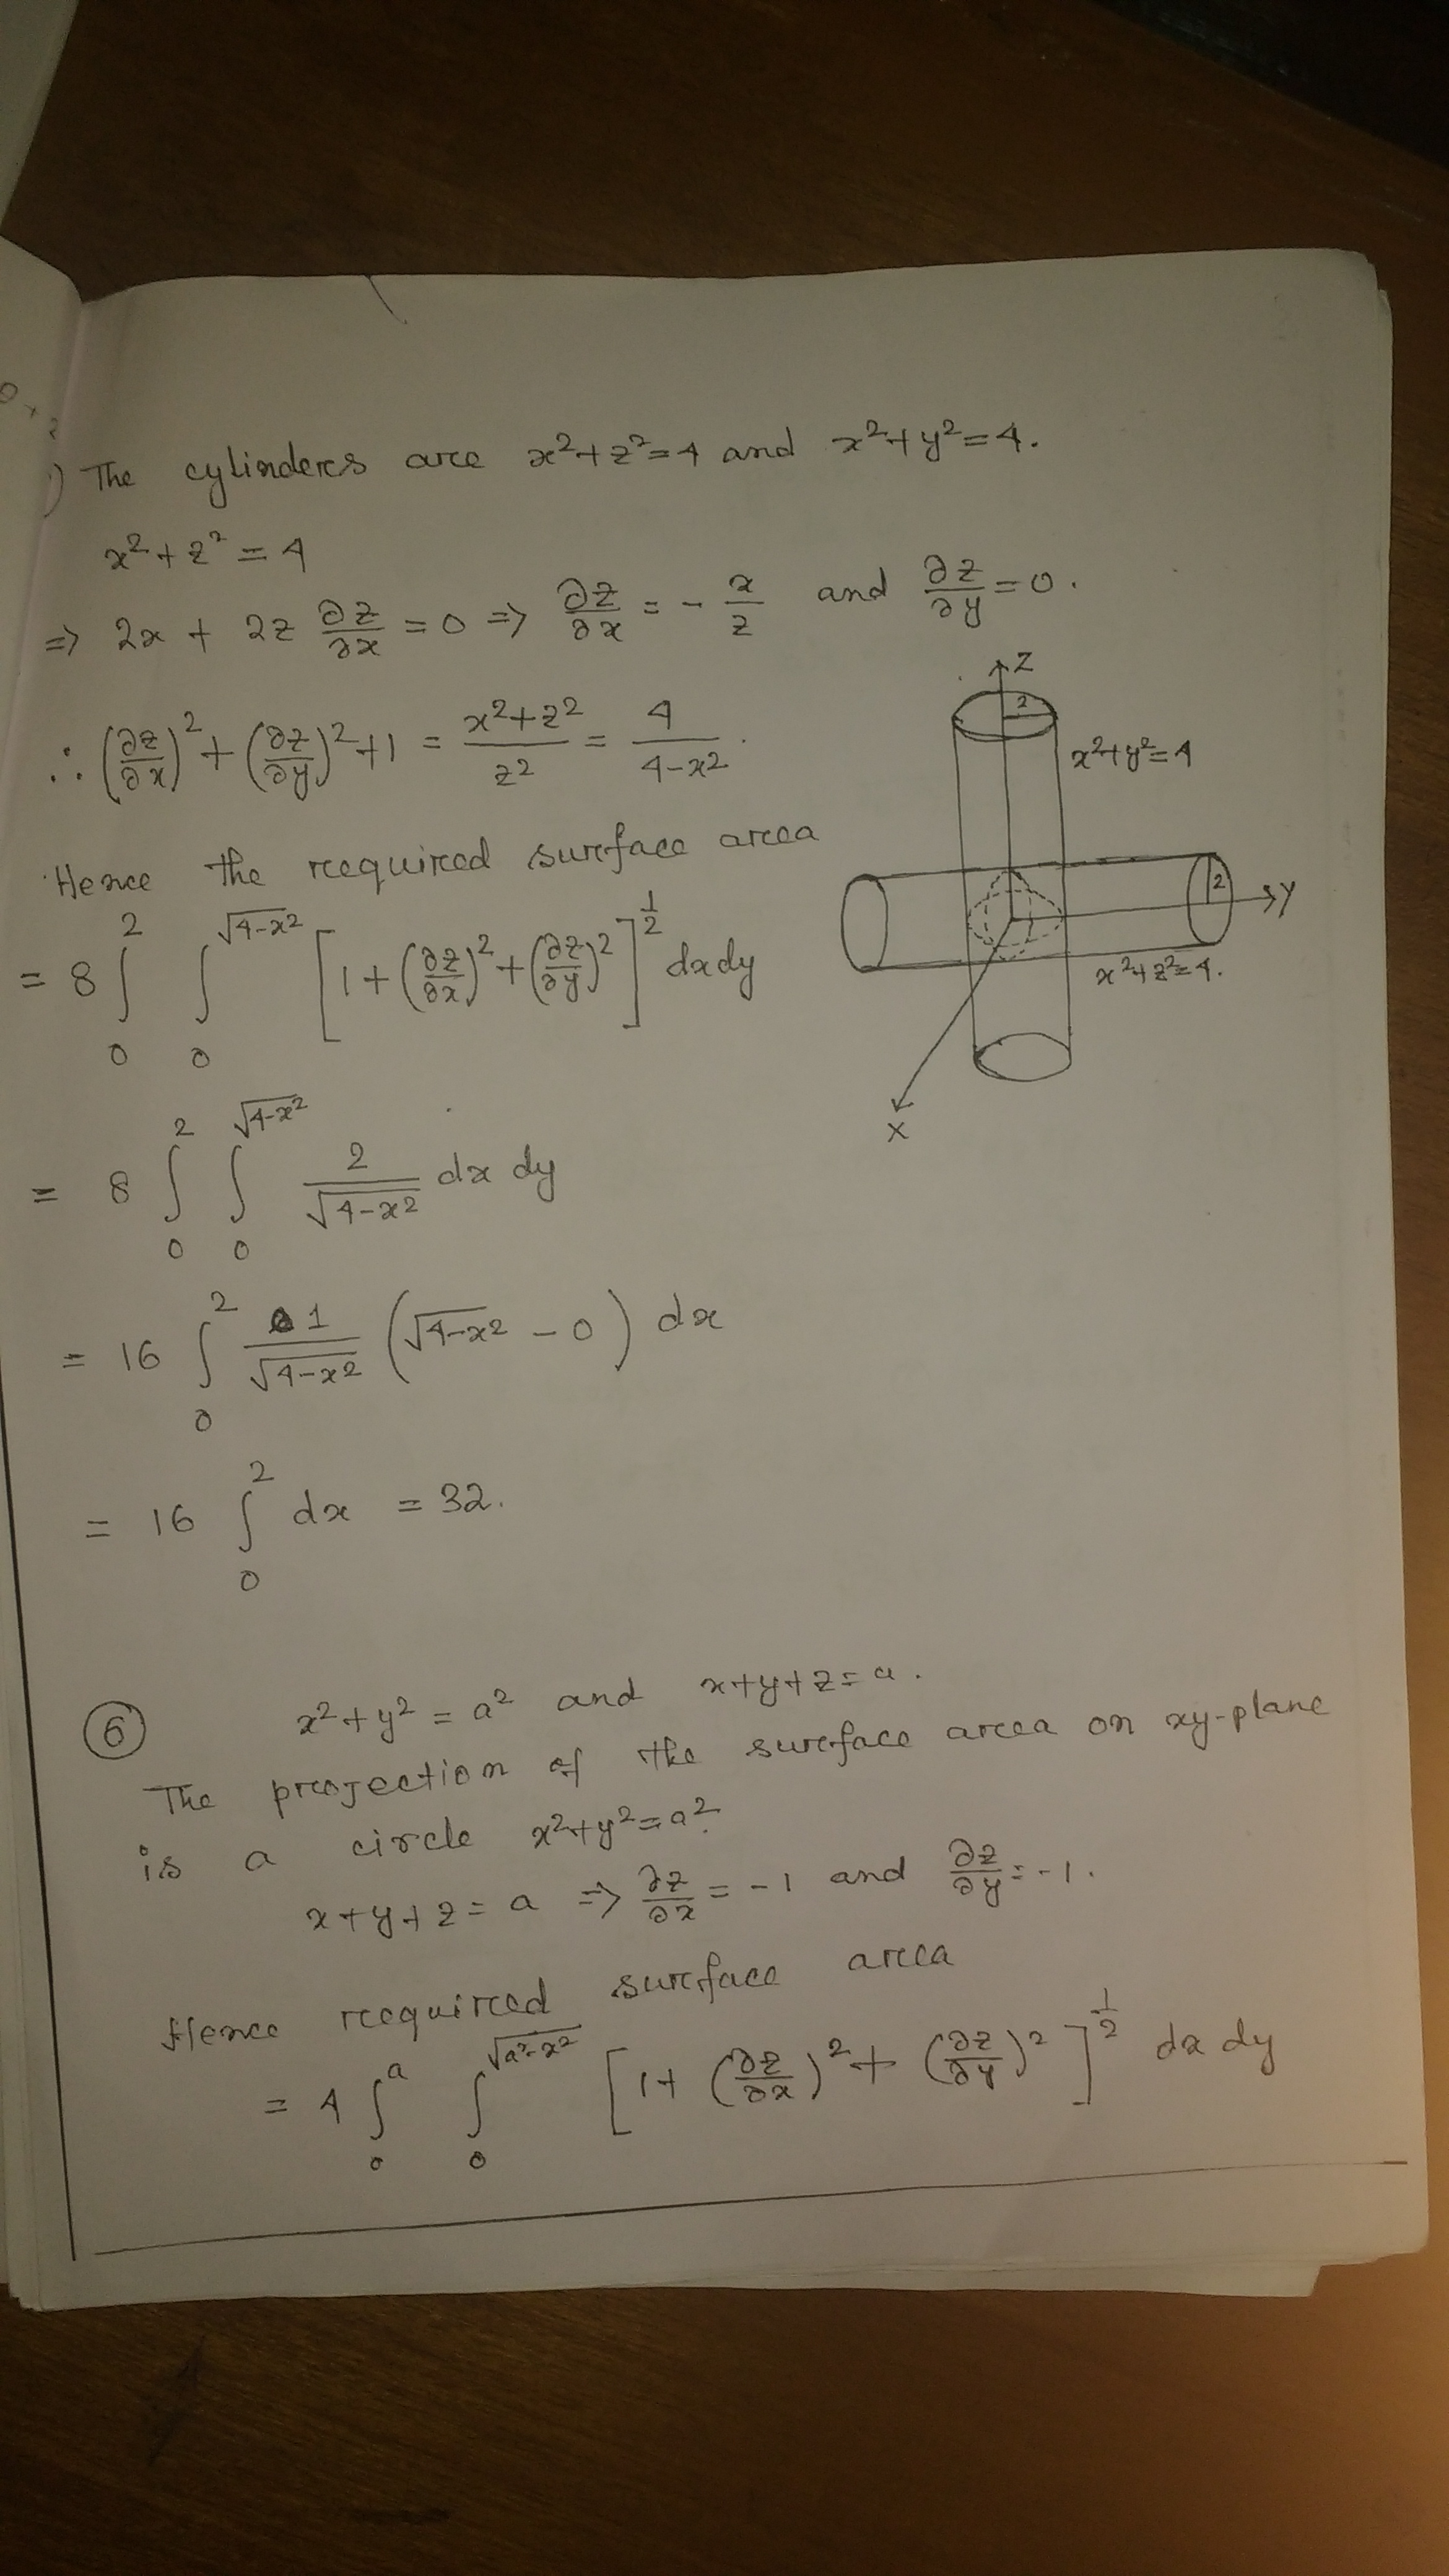 ) The cylinders are x²+z²=4 and x²+y²=4.
x²+z²=4
⇒ 2x + 2z ∂z/∂x = 0 ⇒ ∂z/∂x = - x/z and ∂z/∂y = 0.
∴ (∂z/∂x)² + (∂z/∂y)² + 1 = (x²+z²)/z² = 4/(4-x²).
Z
2
x²+y²=4
2
Y
x²+z²=4.
X
Hence the required surface area
= 8 ∫₀² ∫₀^√(4-x²) [1+(∂z/∂x)²+(∂z/∂y)²]^(1/2) dxdy
= 8 ∫₀² ∫₀^√(4-x²) 2/√(4-x²) dx dy
= 16 ∫₀² 1/√(4-x²) (√(4-x²) - 0) dx
= 16 ∫₀² dx = 32.
⑥ x²+y² = a² and x+y+z=a.
The projection of the surface area on xy-plane
is a circle x²+y²=a².
x+y+z = a ⇒ ∂z/∂x = -1 and ∂z/∂y = -1.
Hence required surface area
= 4 ∫₀^a ∫₀^√(a²-x²) [1+ (∂z/∂x)² + (∂z/∂y)²]^(1/2) dx dy